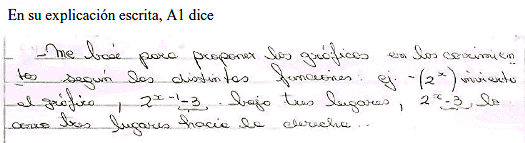 En su explicación escrita, A1 dice
- Me basé para proponer los gráficos en los corrimien
tos según las distintas funciones: ej. -(2^x) invierto
el gráfico, 2^x-1-3 bajo tres lugares, 2^x-3 lo
corro tres lugares hacia la derecha..